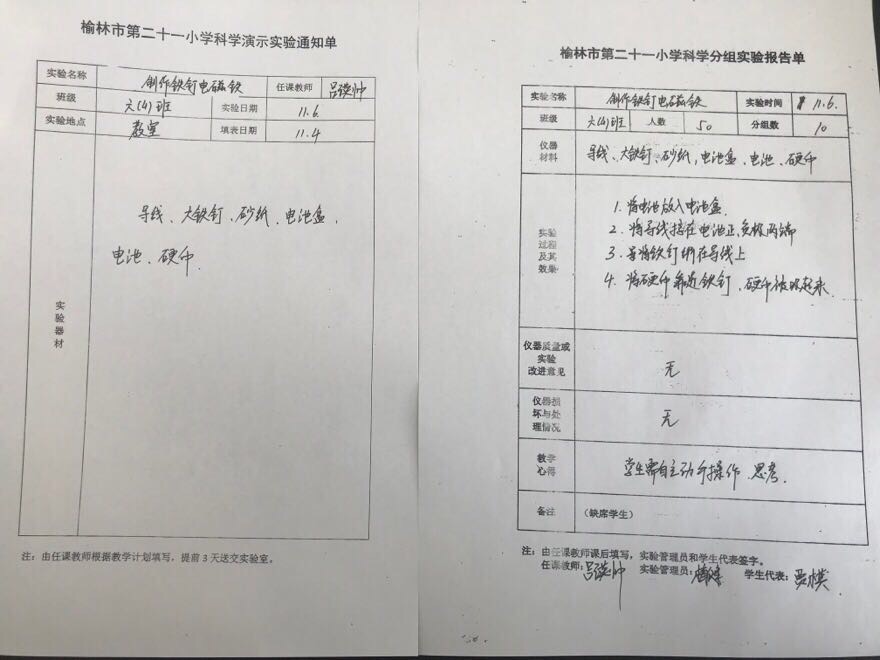 榆林市第二十一小学科学演示实验通知单
实验名称 制作铁钉电磁铁 任课教师
班级 六(4)班 实验日期 11.6.
实验地点 教室 填表日期 11.4
实验器材
导线、大铁钉、砂纸、电池盒、
电池、硬币.
注：由任课教师根据教学计划填写，提前3天送交实验室。
榆林市第二十一小学科学分组实验报告单
实验名称 制作铁钉电磁铁 实验时间 11.6.
班级 六(4)班 人数 50 分组数 10
仪器材料 导线、大铁钉、砂纸，电池盒、电池、硬币
实验过程及其效果
1. 将电池放入电池盒.
2. 将导线接在电池正.负极两端
3. 将铁钉绑在导线上
4. 将硬币靠近铁钉、硬币被吸起来.
仪器质量或实验改进意见 无
仪器损坏与处理情况 无
教学心得 学生需自主动手操作、思考.
备注 （缺席学生）
注：由任课教师课后填写，实验管理员和学生代表签字。
任课教师: 实验管理员: 学生代表: